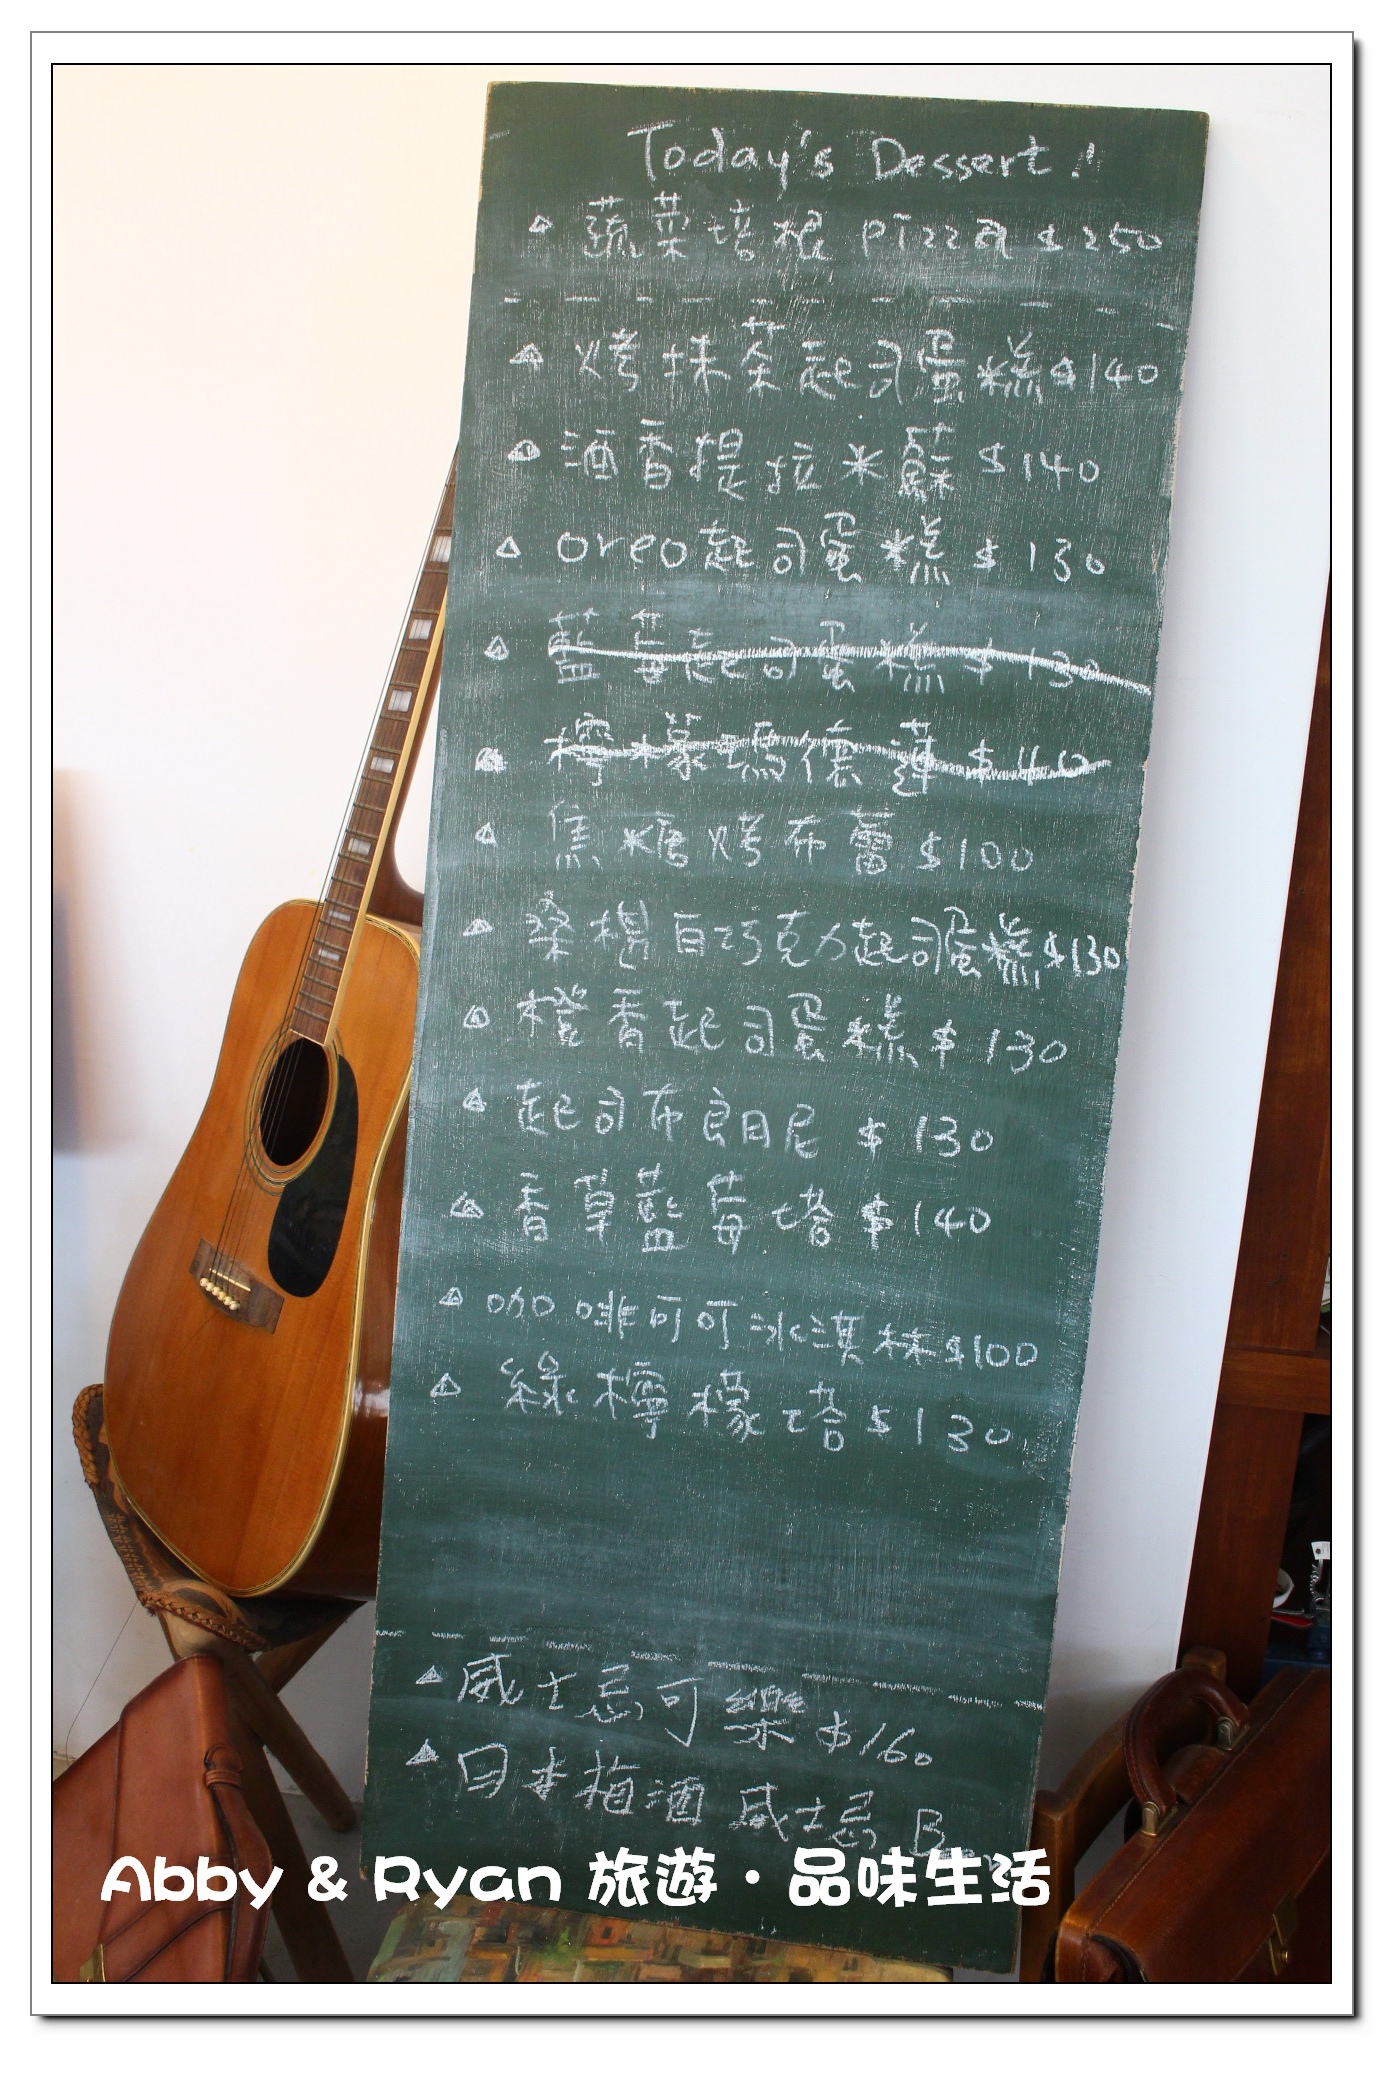 Today's Dessert!
蔬菜培根 pizza $250
烤抹茶起司蛋糕$140
酒香提拉米蘇 $140
oreo起司蛋糕 $130
藍莓起司蛋糕 $130
檸檬瑪德蓮 $110
焦糖烤布蕾 $100
桑椹白巧克力起司蛋糕$130
橙香起司蛋糕 $130
起司布朗尼 $130
香草藍莓塔 $140
咖啡可可冰淇林$100
綠檸檬塔 $130
威士忌可樂 $160
日本梅酒 威士忌
Abby & Ryan 旅遊・品味生活